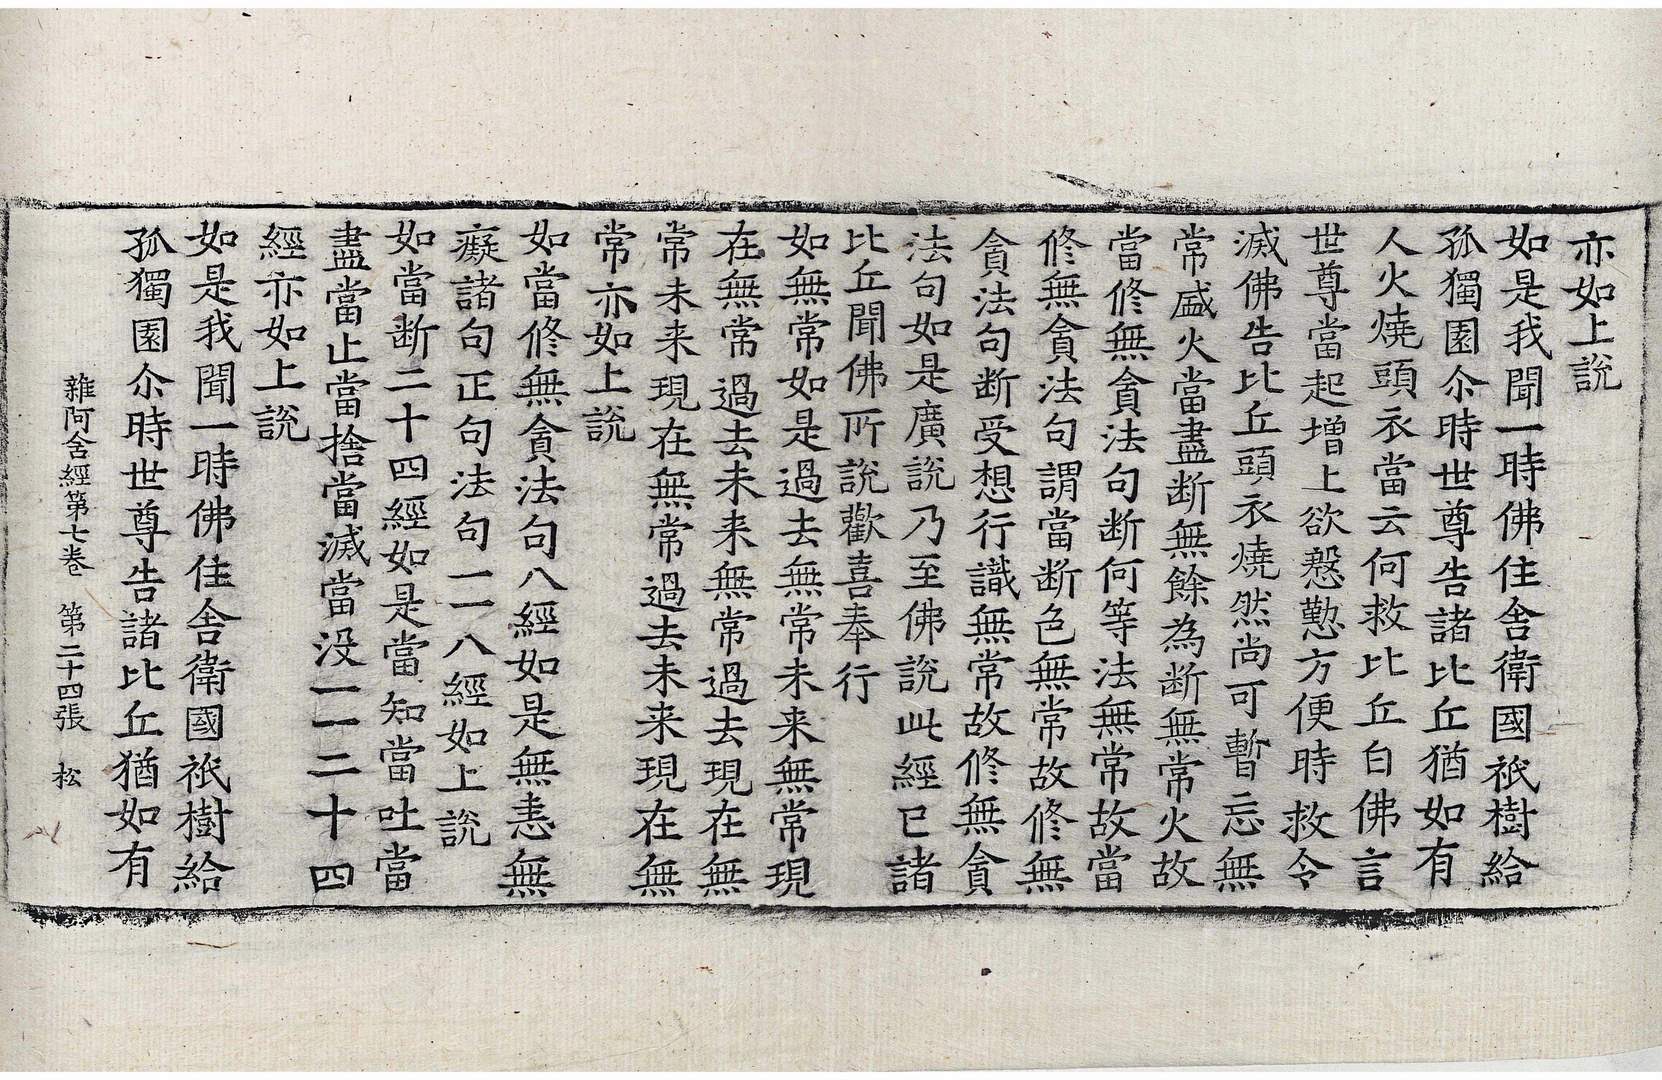 亦如上說
如是我聞一時佛住舍衛國祇樹給
孤獨園尒時世尊告諸比丘猶如有
人火燒頭衣當云何救比丘白佛言
世尊當起增上欲慇懃方便時救令
滅佛告比丘頭衣燒然尚可暫忘無
常盛火當盡断無餘為断無常火故
當修無貪法句断何等法無常故當
修無貪法句謂當断色無常故修無
貪法句断受想行識無常故修無貪
法句如是廣說乃至佛說此經已諸
比丘聞佛所說歡喜奉行
如無常如是過去無常未来無常現
在無常過去未来無常過去現在無
常未来現在無常過去未来現在無
常亦如上說
如當修無貪法句八經如是無恚無
癡諸句正句法句一一八經如上說
如當断二十四經如是當知當吐當
盡當止當捨當滅當没一一二十四
經亦如上說
如是我聞一時佛住舍衛國祇樹給
孤獨園尒時世尊告諸比丘猶如有
雜阿含經第七卷　第二十四張　松